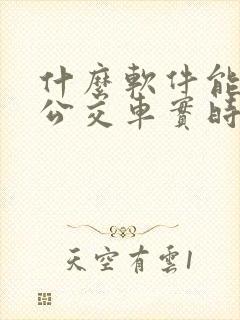 什麽軟件能
公交車實時
天空有雲1